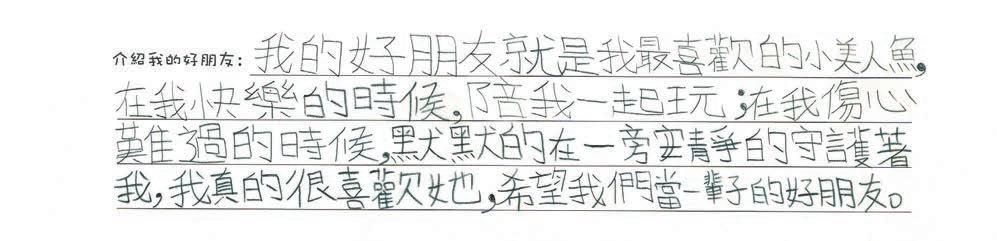 介紹我的好朋友：我的好朋友就是我最喜歡的小美人魚，
在我快樂的時候，陪我一起玩；在我傷心
難過的時候，默默的在一旁安靜的守護著
我，我真的很喜歡她，希望我們當一輩子的好朋友。